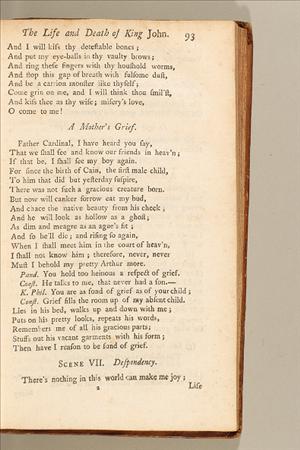 The Life and Death of King John. 93
And I will kiſs thy deteſtable bones;
And put my eye-balls in thy vaulty brows;
And ring theſe fingers with thy houſhold worms,
And ſtop this gap of breath with fulſome duſt,
And be a carrion monſter like thyſelf;
Come grin on me, and I will think thou ſmil'ſt,
And kiſs thee as thy wife; miſery's love,
O come to me!
A Mother's Grief.
Father Cardinal, I have heard you ſay,
That we ſhall ſee and know our friends in heav'n;
If that be, I ſhall ſee my boy again.
For ſince the birth of Cain, the firſt male child,
To him that did but yeſterday ſuſpire,
There was not ſuch a gracious creature born.
But now will canker ſorrow eat my bud,
And chace the native beauty from his cheek;
And he will look as hollow as a ghoſt;
As dim and meagre as an ague's fit;
And ſo he'll die; and riſing ſo again,
When I ſhall meet him in the court of heav'n,
I ſhall not know him; therefore, never, never
Muſt I behold my pretty Arthur more.
Pand. You hold too heinous a reſpect of grief.
Conſt. He talks to me, that never had a ſon.—
K. Phil. You are as fond of grief as of your child;
Conſt. Grief fills the room up of my abſent child.
Lies in his bed, walks up and down with me;
Puts on his pretty looks, repeats his words,
Remembers me of all his gracious parts;
Stuffs out his vacant garments with his form;
Then have I reaſon to be fond of grief.
SCENE VII. Deſpondency.
There's nothing in this world can make me joy;
2 Life